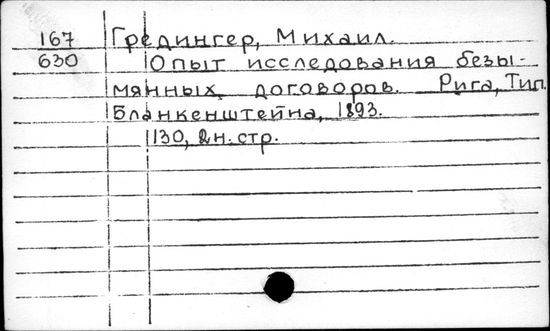 167 Гредингер, Михаил.
630 Опыт исследования безы-
мянных договоров. Рига, Тип.
Бланкенштейна, 1893.
130, 2н. стр.